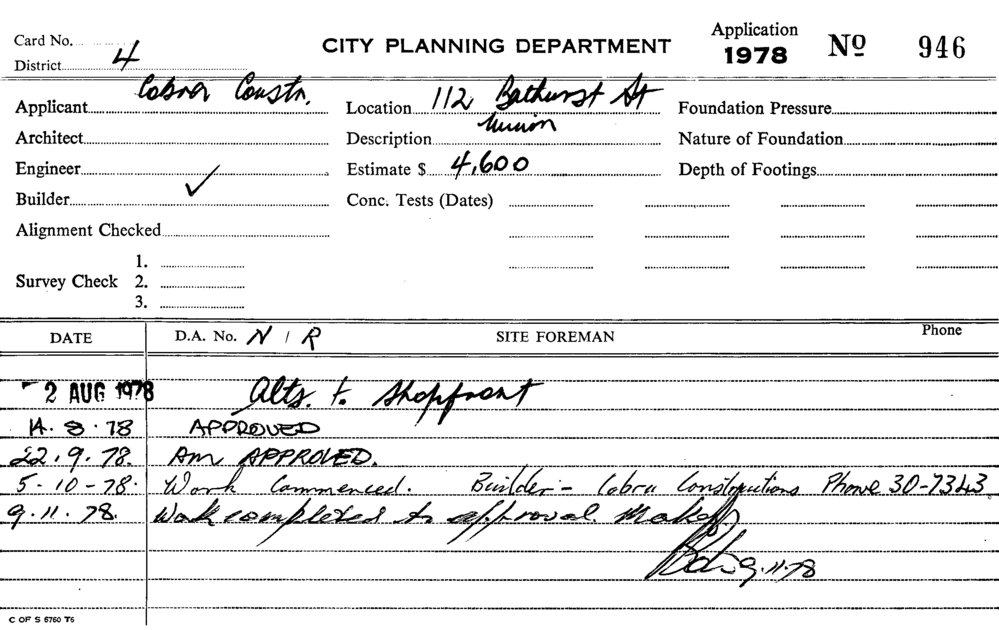 Card No.
CITY PLANNING DEPARTMENT
Application 1978 Nº 946
District 4
Applicant Cobra Constr. Location 112 Bathurst St Foundation Pressure
Architect Description Nature of Foundation
Engineer Estimate $ 4,600 Depth of Footings
Builder ✓ Conc. Tests (Dates)
Alignment Checked
1.
Survey Check 2.
3.
DATE D.A. No. N / R SITE FOREMAN Phone
2 AUG 1978 Alts. to Shopfront
14.8.78 APPROVED
22.9.78. Am APPROVED.
5-10-78. Work Commenced. Builder:- Cobra Constructions Phone 30-7343
9.11.78. Work completed to approval.
9.11.78
C OF S 6760 T6